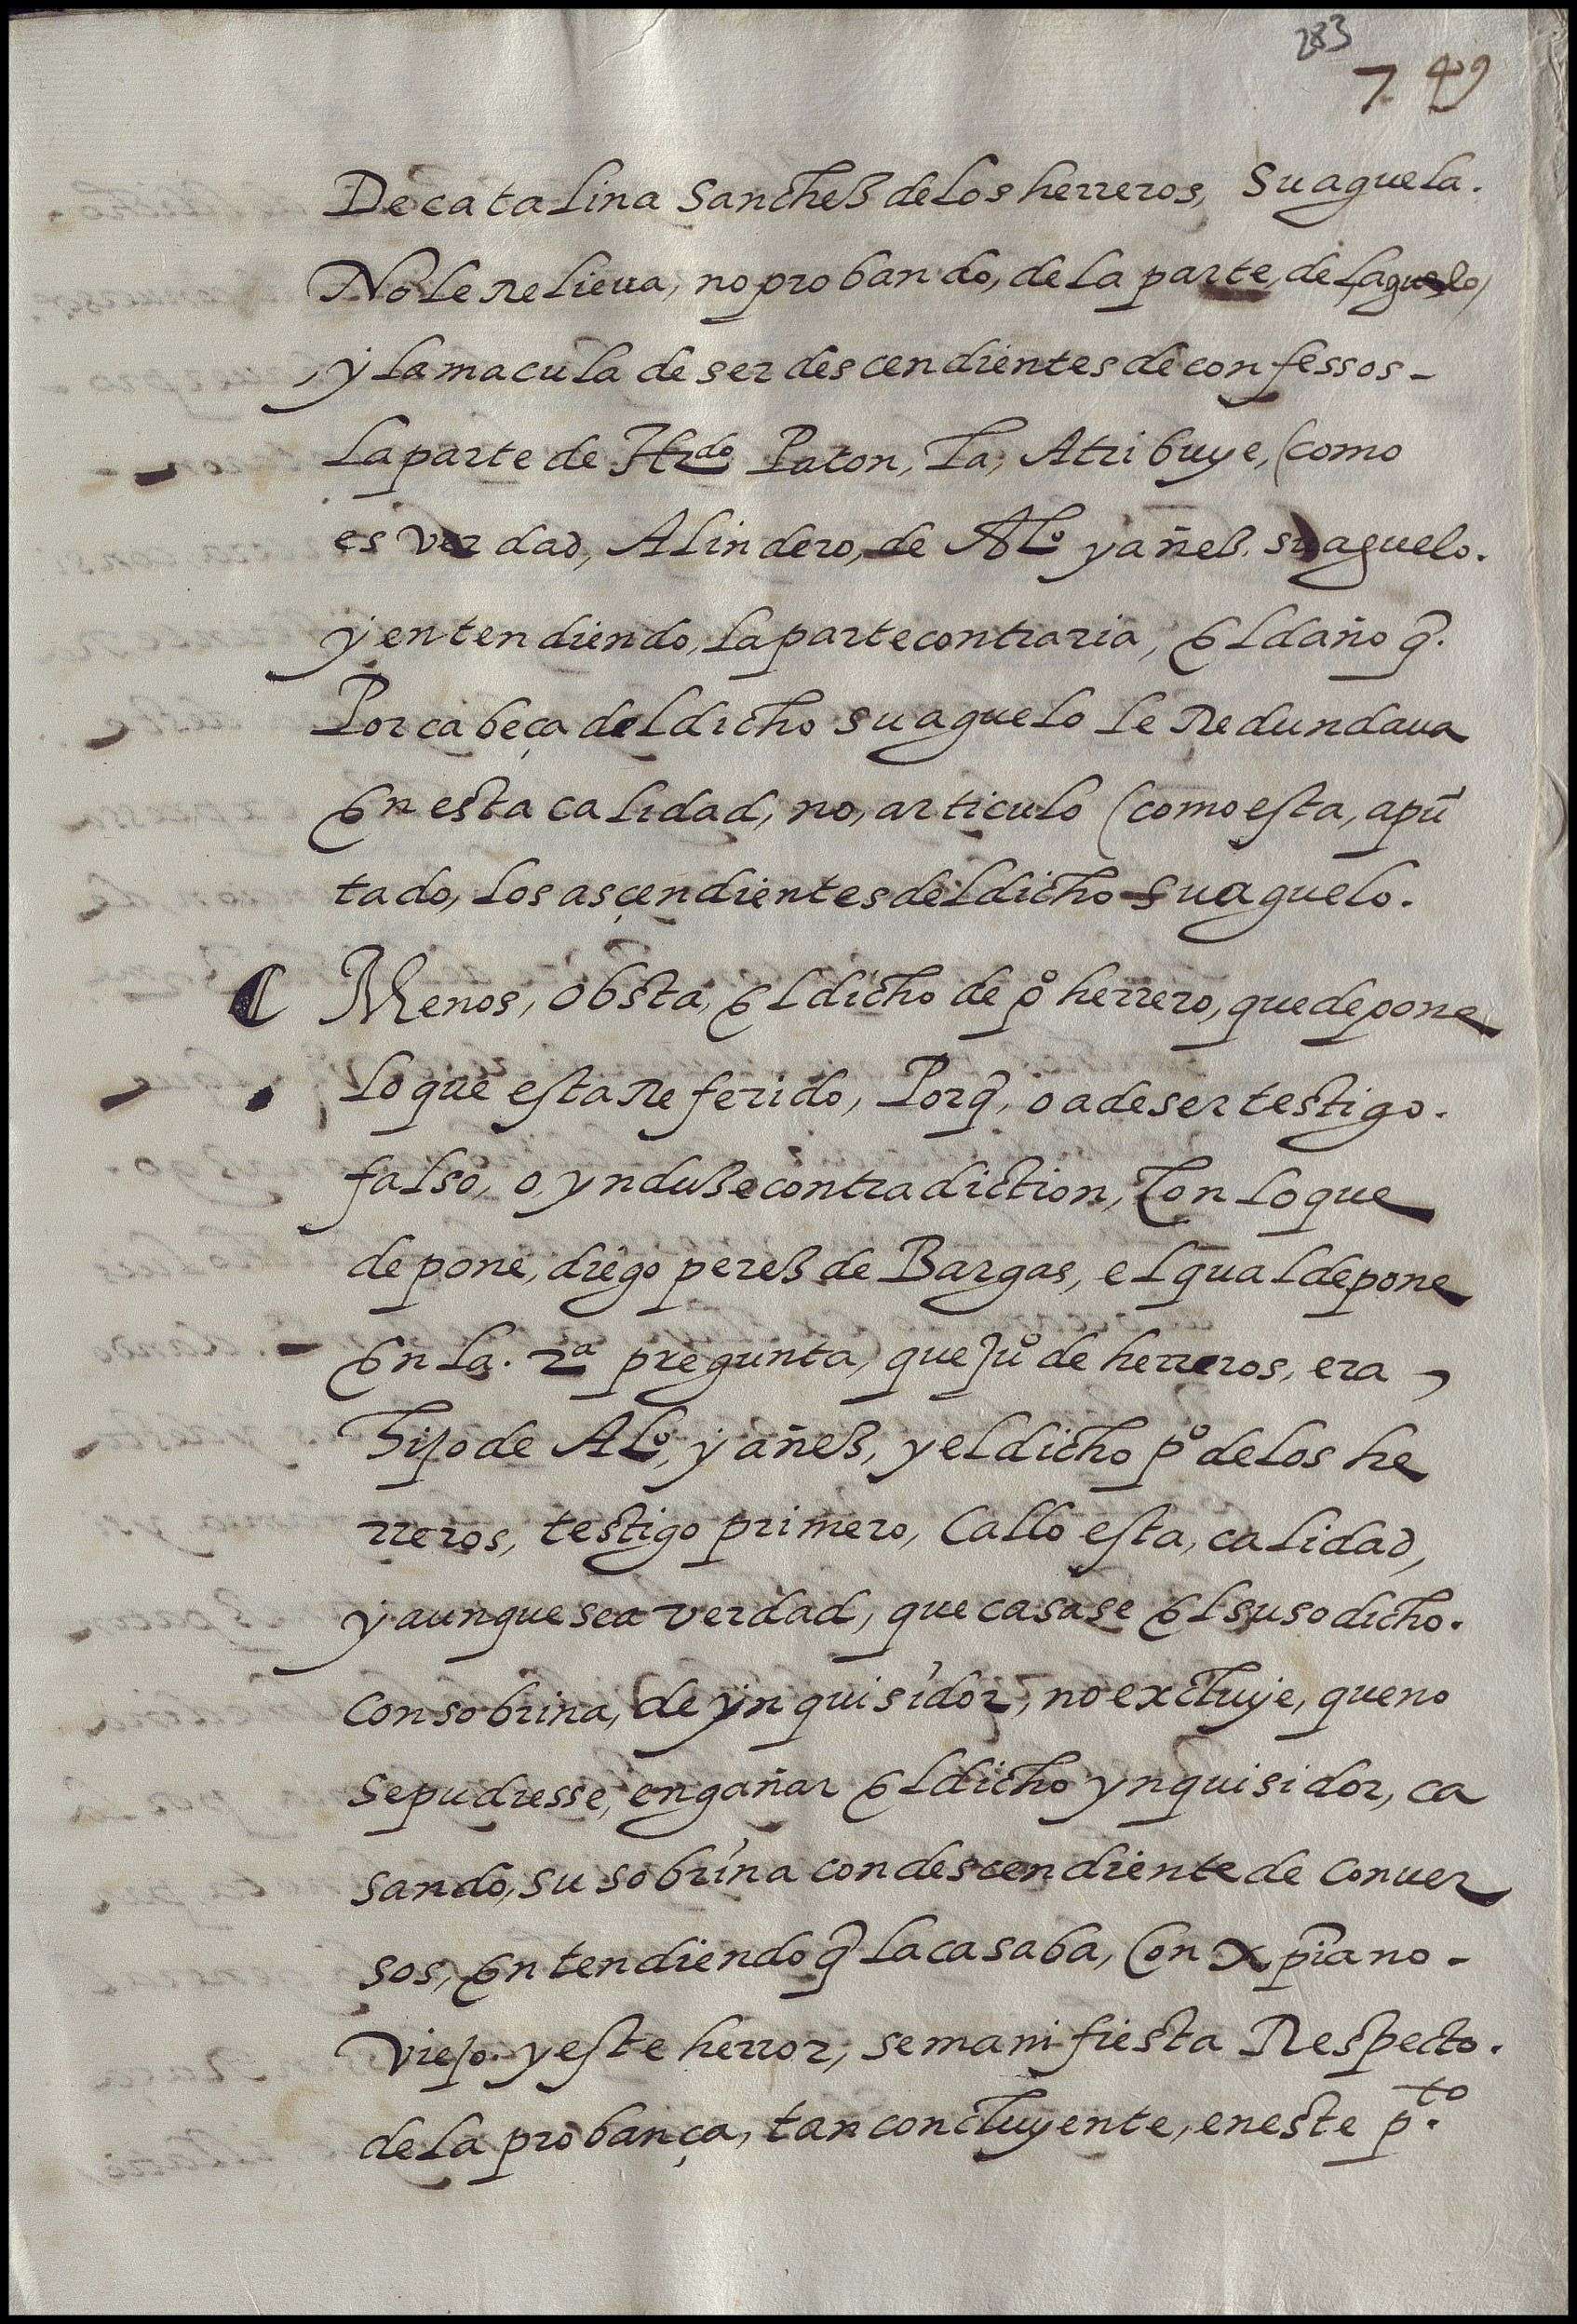 283
7. 49
De catalina Sanchez de los herreros, Su aguela.
No le Relieua, no probando, de la parte, del aguelo,
y la macula de ser descendientes de confessos -
La parte de Hrdo Paton, La, Atribuye, (como
es verdad, Alindero, de Alo. yañez su aguelo.
y entendiendo, la parte contraria, El daño q̃.
Por cabeça del dicho su aguelo le Redundaua
En esta calidad, no, articulo (como esta, apũ
tado, los asçendientes del dicho su aguelo.
Menos, obsta, El dicho de po herrero, que depone
lo que esta Referido, Porq̃, o a de ser testigo.
falso, o, ynduze contradiction, Con lo que
depone, diego perez de Bargas, el qual depone
En la. 2a pregunta, que Juo de herreros, era,
hijo de Alo, yañez, y el dicho po de los he
rreros, testigo primero, Callo esta, calidad,
y aunque sea verdad, que casase El suso dicho.
con sobrina, de ynquisidor, no excluye, que no
se pudiesse, engañar El dicho ynquisidor, ca
sando, su sobrina con descendiente de conuer
sos, Entendiendo q̃ la casaba, Con xp̃iano -
viejo. y este herror, se manifiesta Respecto.
de la probança, tan concluyente, en este p.to